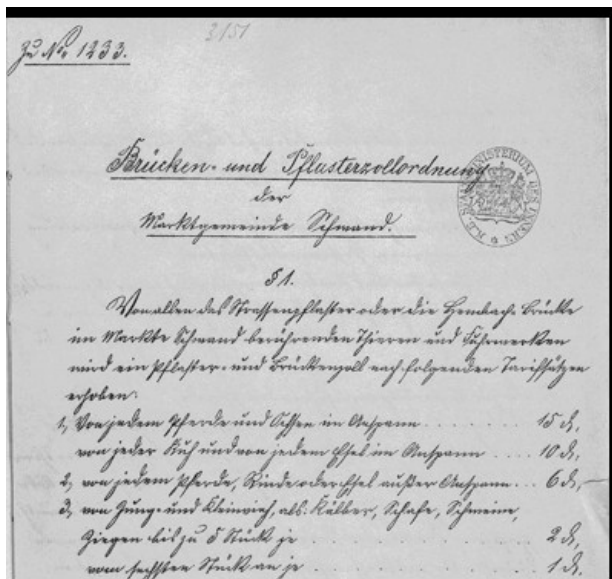 3151
Zu No 1233.
Brücken- und Pflasterzollordnung
der
Marktgemeinde Schwand.
K.B. STAATSMINISTERIUM DES INNERN
§ 1.
Von allen das Strassenpflaster oder die Hembach-Brücke
im Markte Schwand berührenden Thieren und Fuhrwerken
wird ein Pflaster- und Brückenzoll nach folgenden Tarifsätzen
erhoben:
1, Von jedem Pferde und Ochsen im Anspann . . . . . . . 15 d,
von jeder Kuh und von jedem Esel im Anspann . . . . 10 d,
2, von jedem Pferde, Rinde oder Esel außer Anspann . . . 6 d,
3, von Jung- und Kleinvieh, als: Kälber, Schafe, Schweine,
Ziegen bis zu 5 Stück je . . . . . . . 2 d,
vom sechsten Stück an je . . . . . . . 1 d.